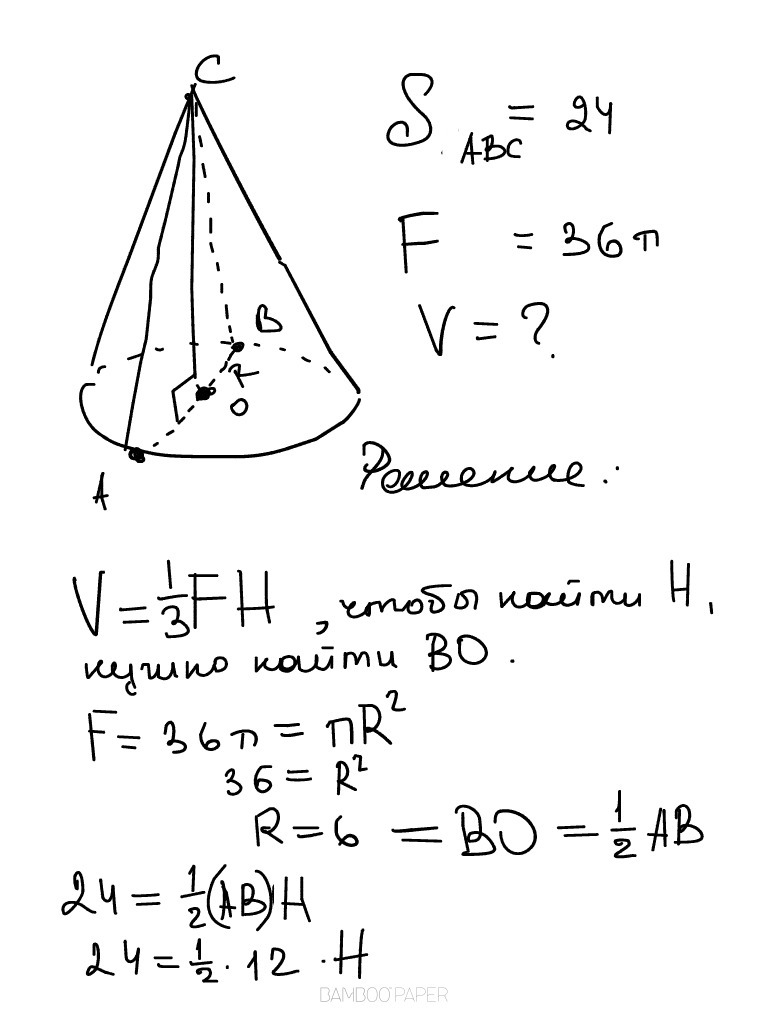 C
S ABC = 24
F = 36π
V = ?
B
R
O
A
Решение:
V = 1/3 FH , чтобы найти H,
нужно найти BO.
F = 36π = πR²
36 = R²
R = 6 = BO = 1/2 AB
24 = 1/2 (AB) H
24 = 1/2 · 12 · H
BAMBOO PAPER